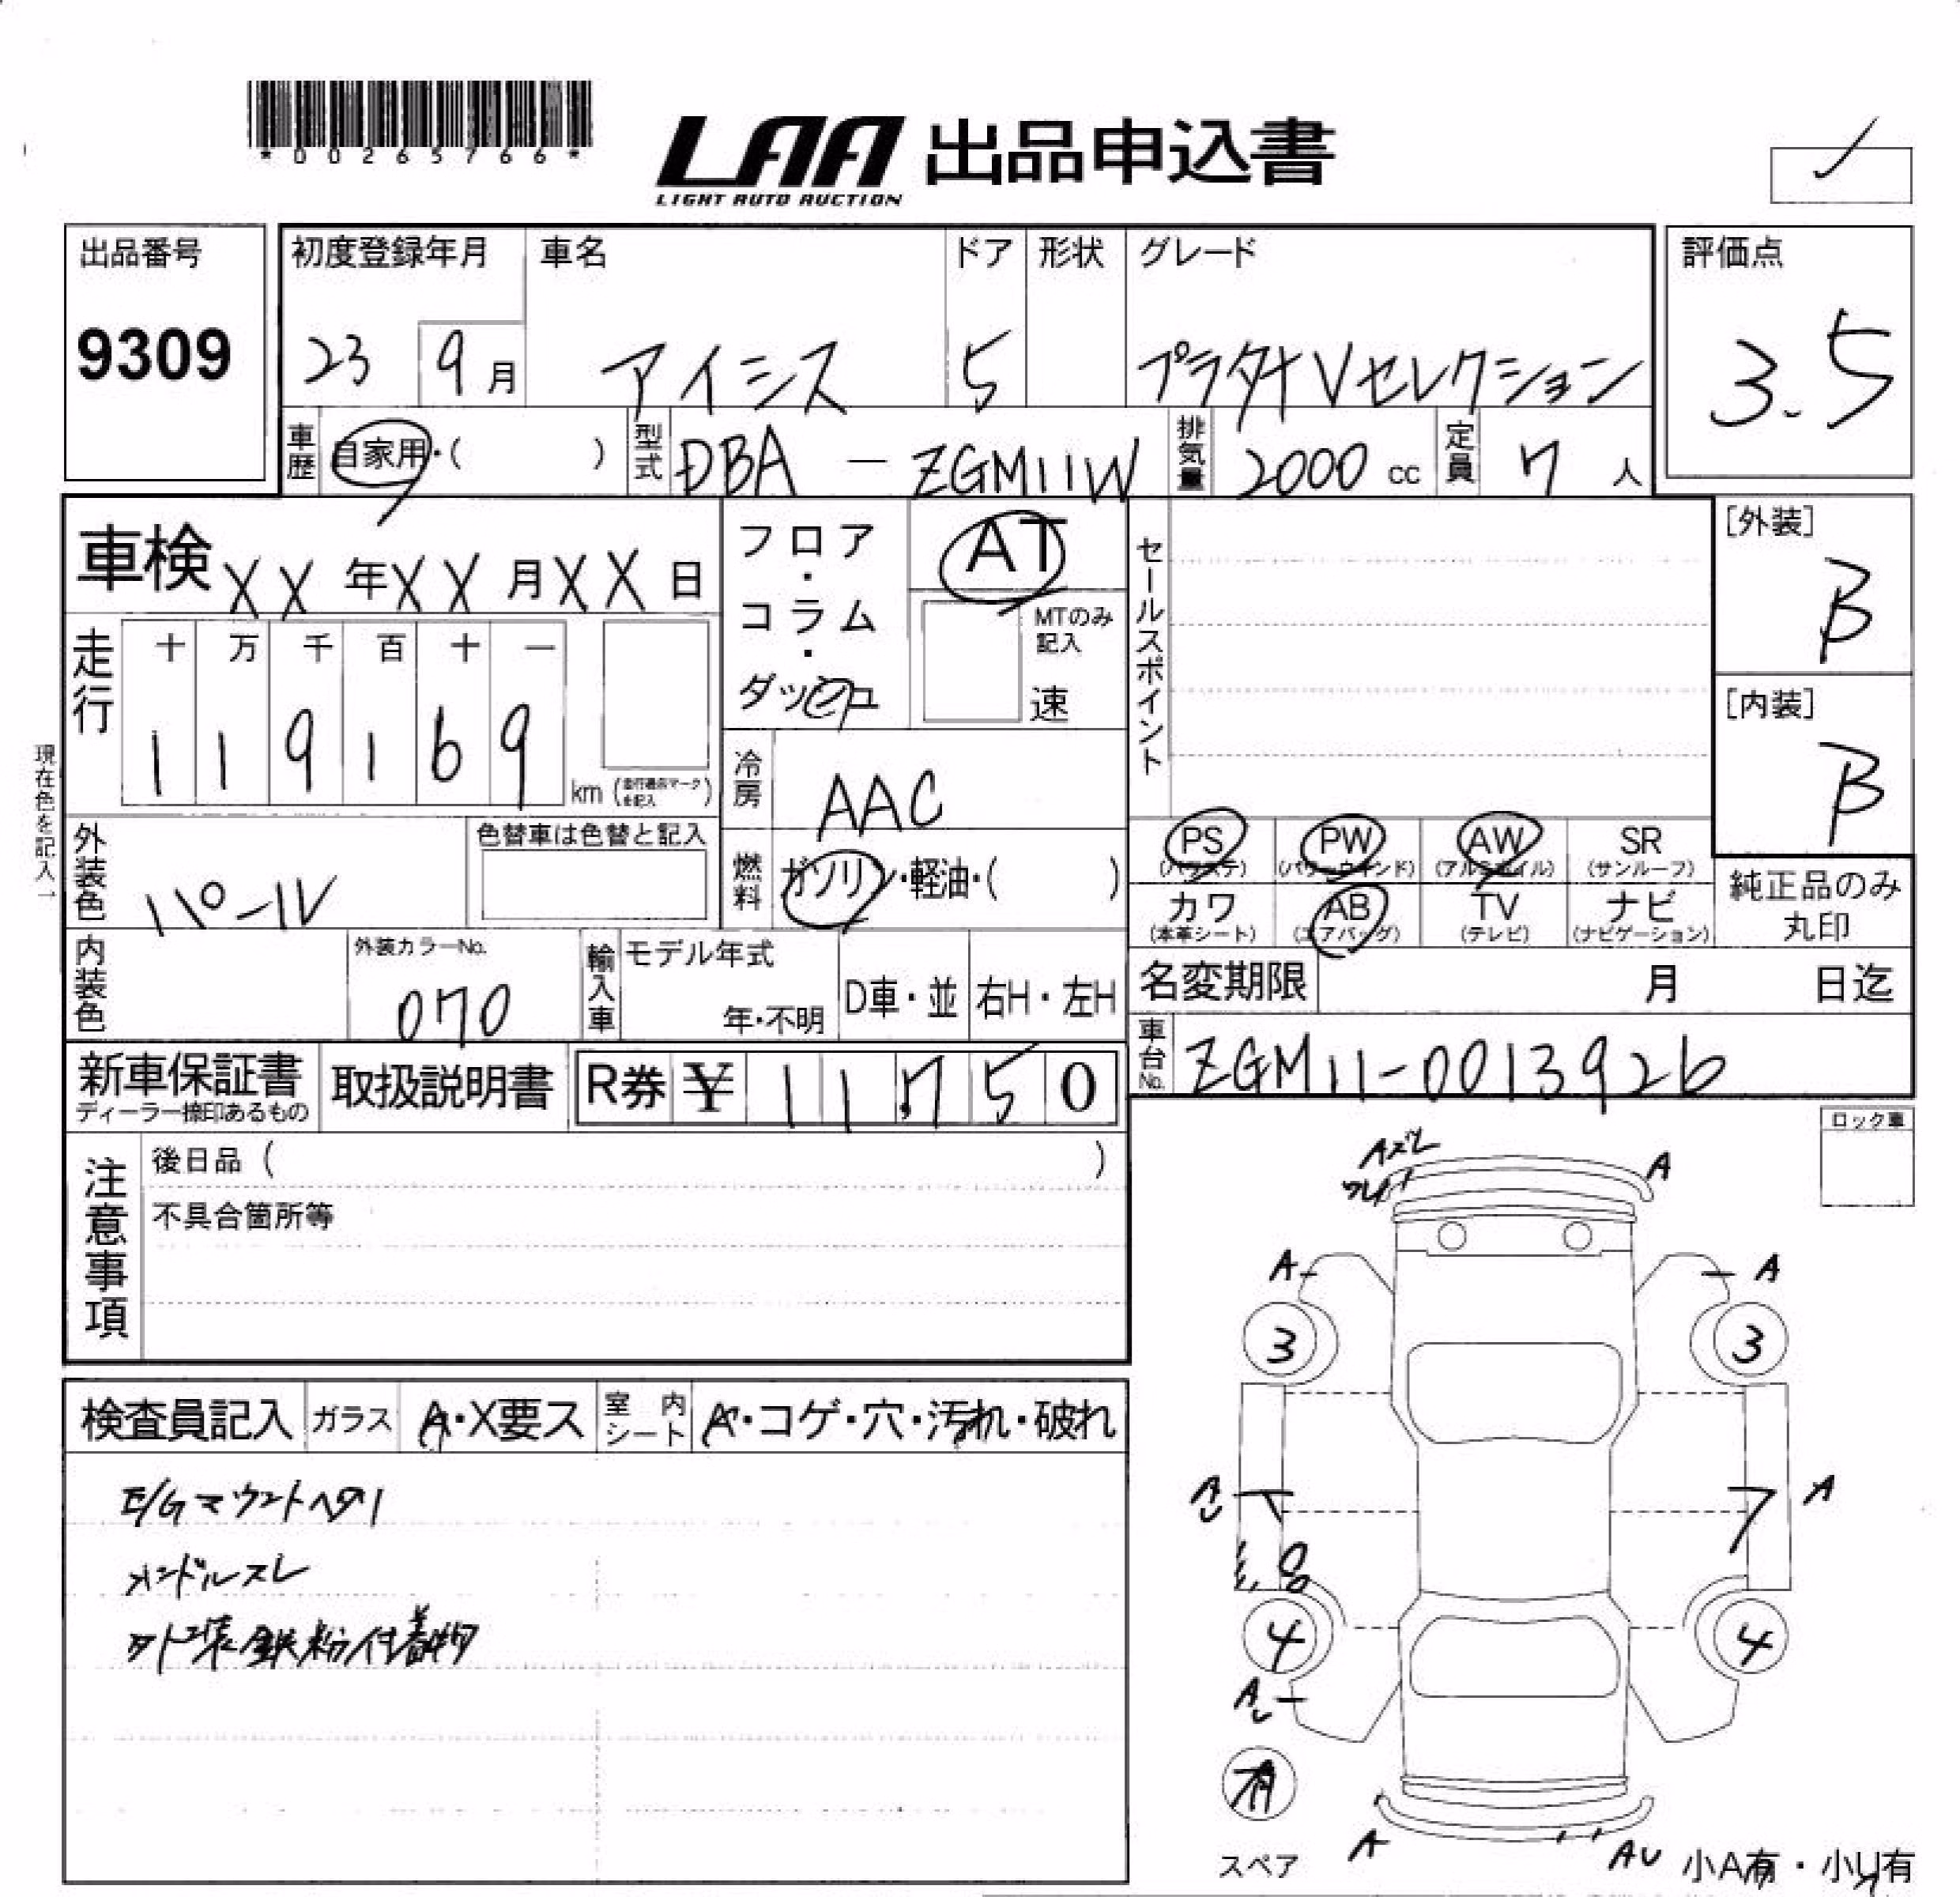 *00265766*
LAA 出品申込書
LIGHT AUTO AUCTION
出品番号
9309
初度登録年月 車名 ドア 形状 グレード
23 9月 アイシス 5 プラタナVセレクション
評価点
3.5
車歴 自家用・( ) 型式 DBA - ZGM11W 排気量 2000 cc 定員 7 人
車検 XX 年 XX 月 XX 日
フロア・コラム・ダッシュ
AT
MTのみ記入
速
セールスポイント
[外装]
B
[内装]
B
走行 十 万 千 百 十 一
119169 km
現在色を記入
冷房 AAC
外装色 パール
色替車は色替と記入
燃料 ガソリン・軽油・( )
PS PW AW SR
(パワステ) (パワーウインド) (アルミホイル) (サンルーフ)
カワ AB TV ナビ
(本革シート) (エアバッグ) (テレビ) (ナビゲーション)
純正品のみ
丸印
内装色
外装カラーNo.
070
輸入車 モデル年式
年・不明 D車・並 右H・左H
名変期限 月 日迄
車台No. ZGM11-0013926
新車保証書
ディーラー捺印あるもの
取扱説明書
R券 ¥ 11,750
ロック車
注意事項
後日品 ( )
不具合箇所等
検査員記入 ガラス A・X要ス 室内シート A・コゲ・穴・汚れ・破れ
E/Gマウントヘタリ
ハンドルスレ
外装鉄粉付着物
Aズレ
ワレ
A
A A
3 3
A A
4 4
A
有
スペア
A AU
小A有・小U有